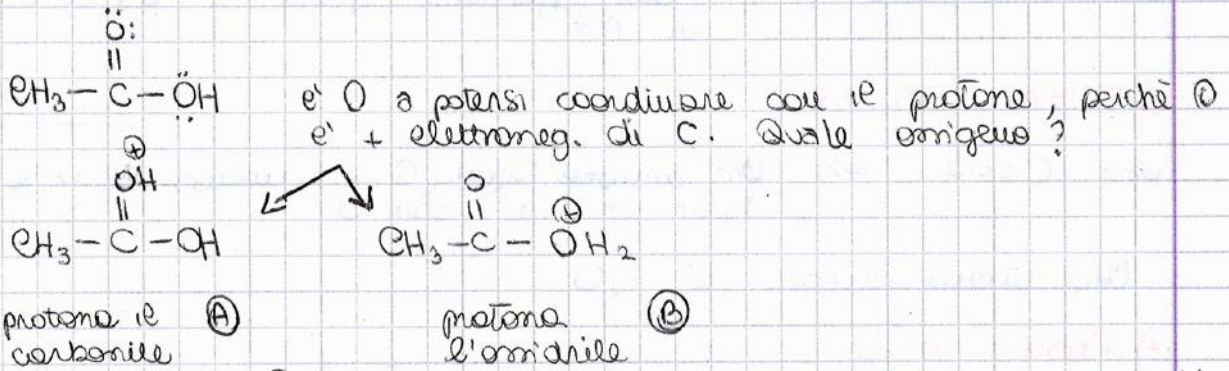 Ö:
||
CH₃ – C – ÖH è O a potersi coordinare con il protone, perchè O
è + elettroneg. di C. Quale ossigeno?
⊕
OH O
|| || ⊕
CH₃ – C – OH CH₃ – C – OH₂
protona il Ⓐ protona Ⓑ
carbonile l'ossidrile